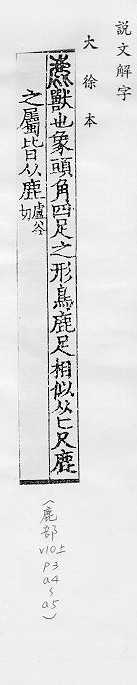 說文解字
大徐本
獸也象頭角四足之形鳥鹿足相似从匕凡鹿
之屬皆从鹿盧谷切
(鹿部
v10上
p3
a4
~
a5)